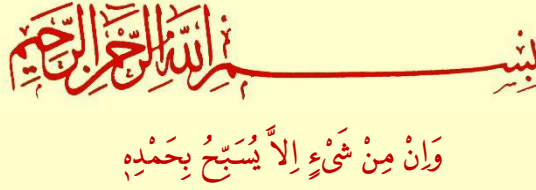 بِسْمِ اللهِ الرَّحْمٰنِ الرَّحِيمِ
وَاِنْ مِنْ شَىْءٍ اِلاَّ يُسَبِّحُ بِحَمْدِهِ